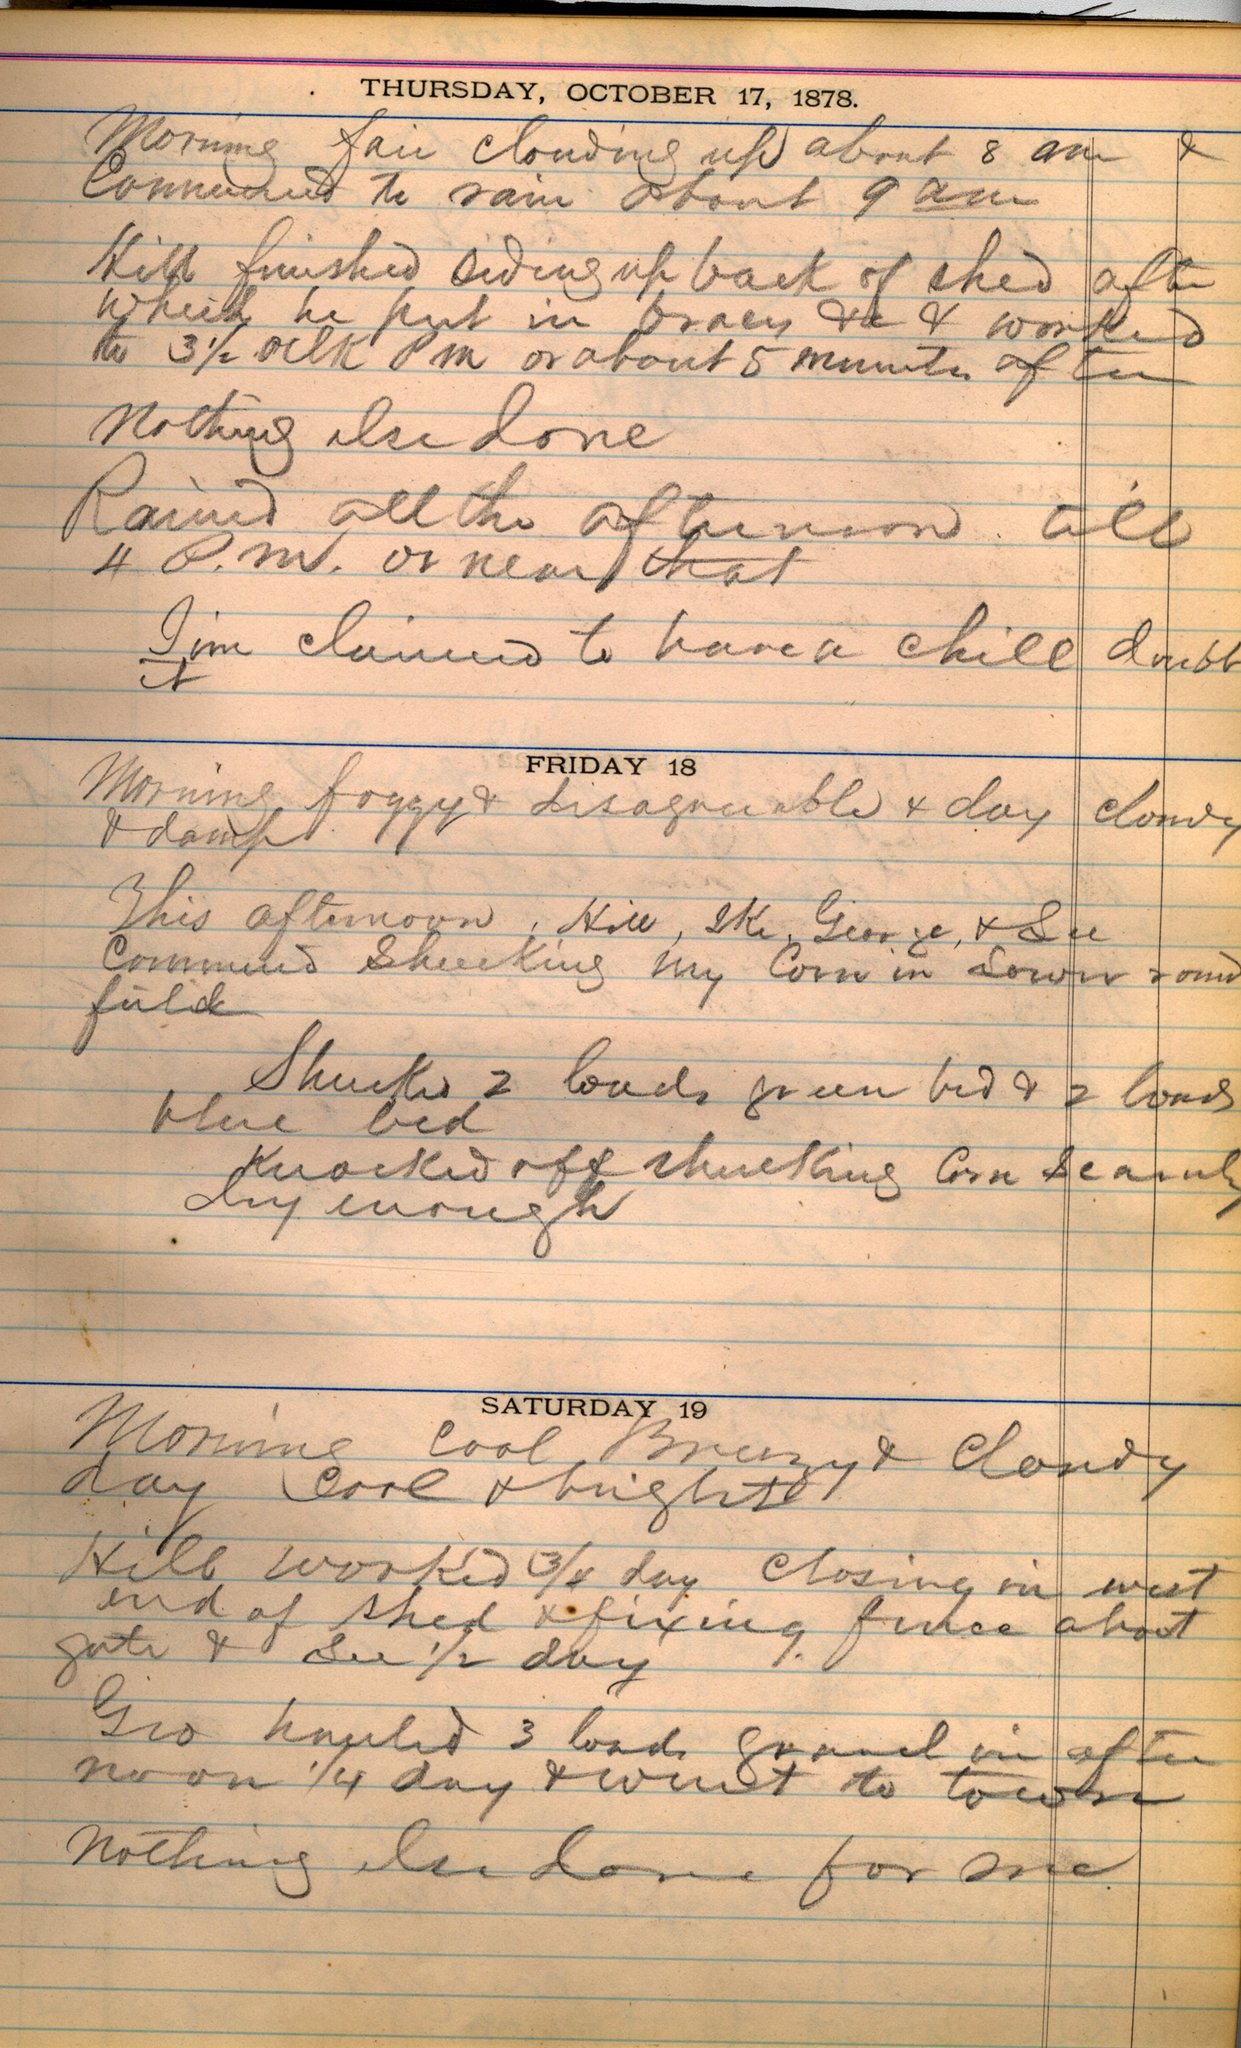 THURSDAY, OCTOBER 17, 1878.
Morning fair clouding up about 8 am &
Commenced to rain about 9 am
Hill finished siding up back of shed after
which he put in braces &c & worked
to 3½ oclk P m or about 5 minutes after
Nothing else done
Rained all the afternoon till
4 P.M. or near that
Jim claimed to have a chill doubt
it
FRIDAY 18
Morning foggy & disagreeable & day cloudy
& damp
This afternoon, Hill, Ike, George, & Lee
Commenced Shucking my Corn in Lower round
field
Shucked 2 loads green bed & 2 loads
blue bed
Knocked off shucking Corn scarcely
dry enough
SATURDAY 19
Morning Cool Breezy & Cloudy
day Cool & bright
Hill worked 3/4 day Closing in west
end of shed & fixing fence about
gate & Lee 1/2 day
Geo hauled 3 loads gravel in after
noon 1/4 day & went to town
Nothing else done for me